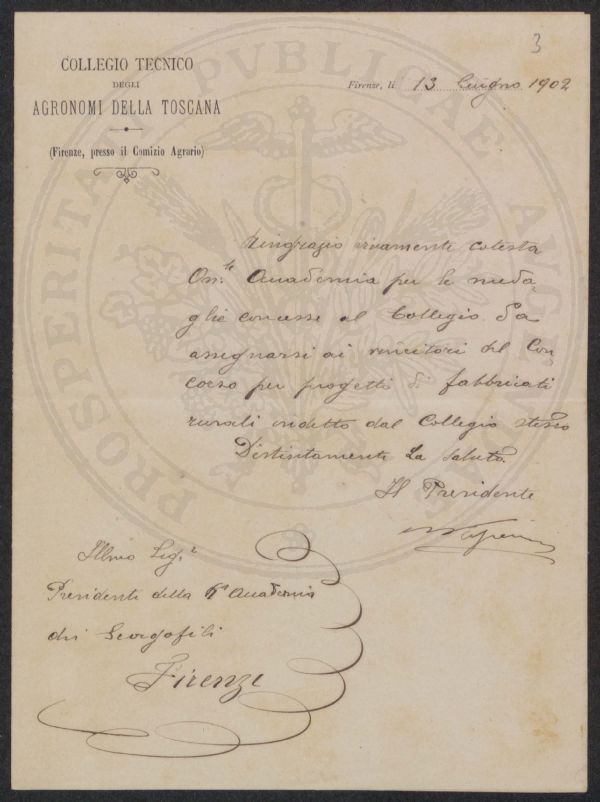 3
COLLEGIO TECNICO
DEGLI
AGRONOMI DELLA TOSCANA
(Firenze, presso il Comizio Agrario)
Firenze, li 13 Giugno 1902
Ringrazio vivamente codesta
On.le Accademia per le meda-
glie concesse al Collegio da
assegnarsi ai vincitori del Con-
corso per progetti di fabbricati
rurali indetto dal Collegio stesso
Distintamente La saluto
Il Presidente
Illmo Sig.r
Presidente della Accademia
dei Georgofili
Firenze
PROSPERITATI PVBLICAE